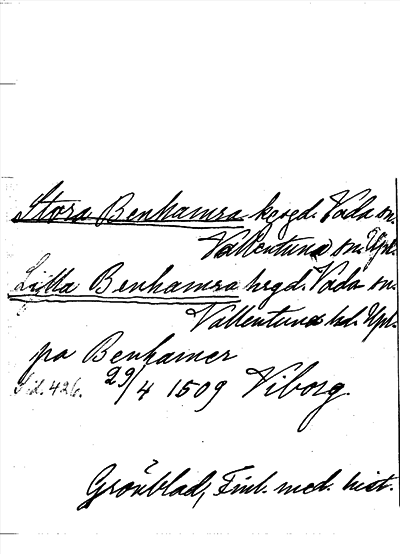 Stora Benhamra kgsgd. Vada sn.
Vallentuna sn. Upl.
Lilla Benhamra hrgd. Vada sn.
Vallentuna hd. Upl.
pa Benhamer
Sid. 426. 29/4 1509 Viborg
Grönblad, Finl. med. hist.